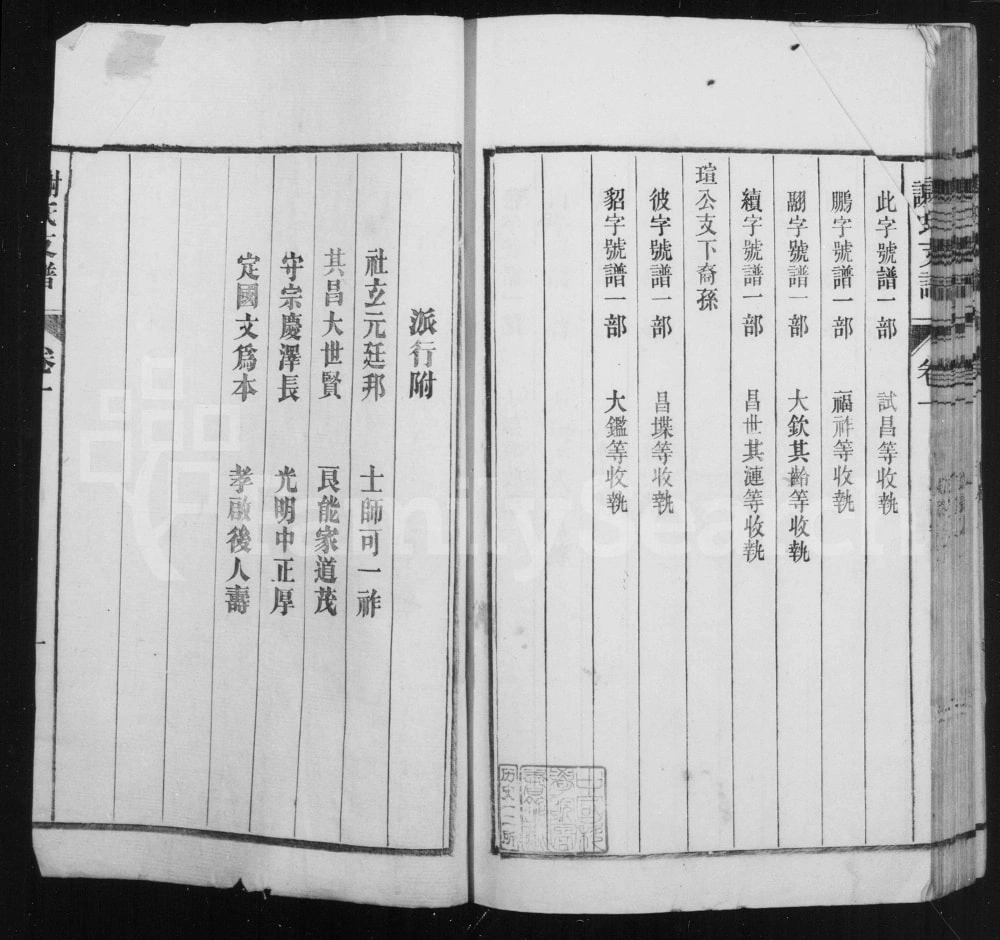 此字號譜一部 試昌等收執
鵬字號譜一部 福祚等收執
翮字號譜一部 大欽其齡等收執
續字號譜一部 昌世其漣等收執
瑄公支下裔孫
彼字號譜一部 昌堞等收執
貂字號譜一部 大鑑等收執
卷一
派行附
社立元廷邦 士師可一祚
其昌大世賢 良能家道茂
守宗慶澤長 光明中正厚
定國文爲本 孝啟後人壽
氏支譜 卷一
一
FamilySearch